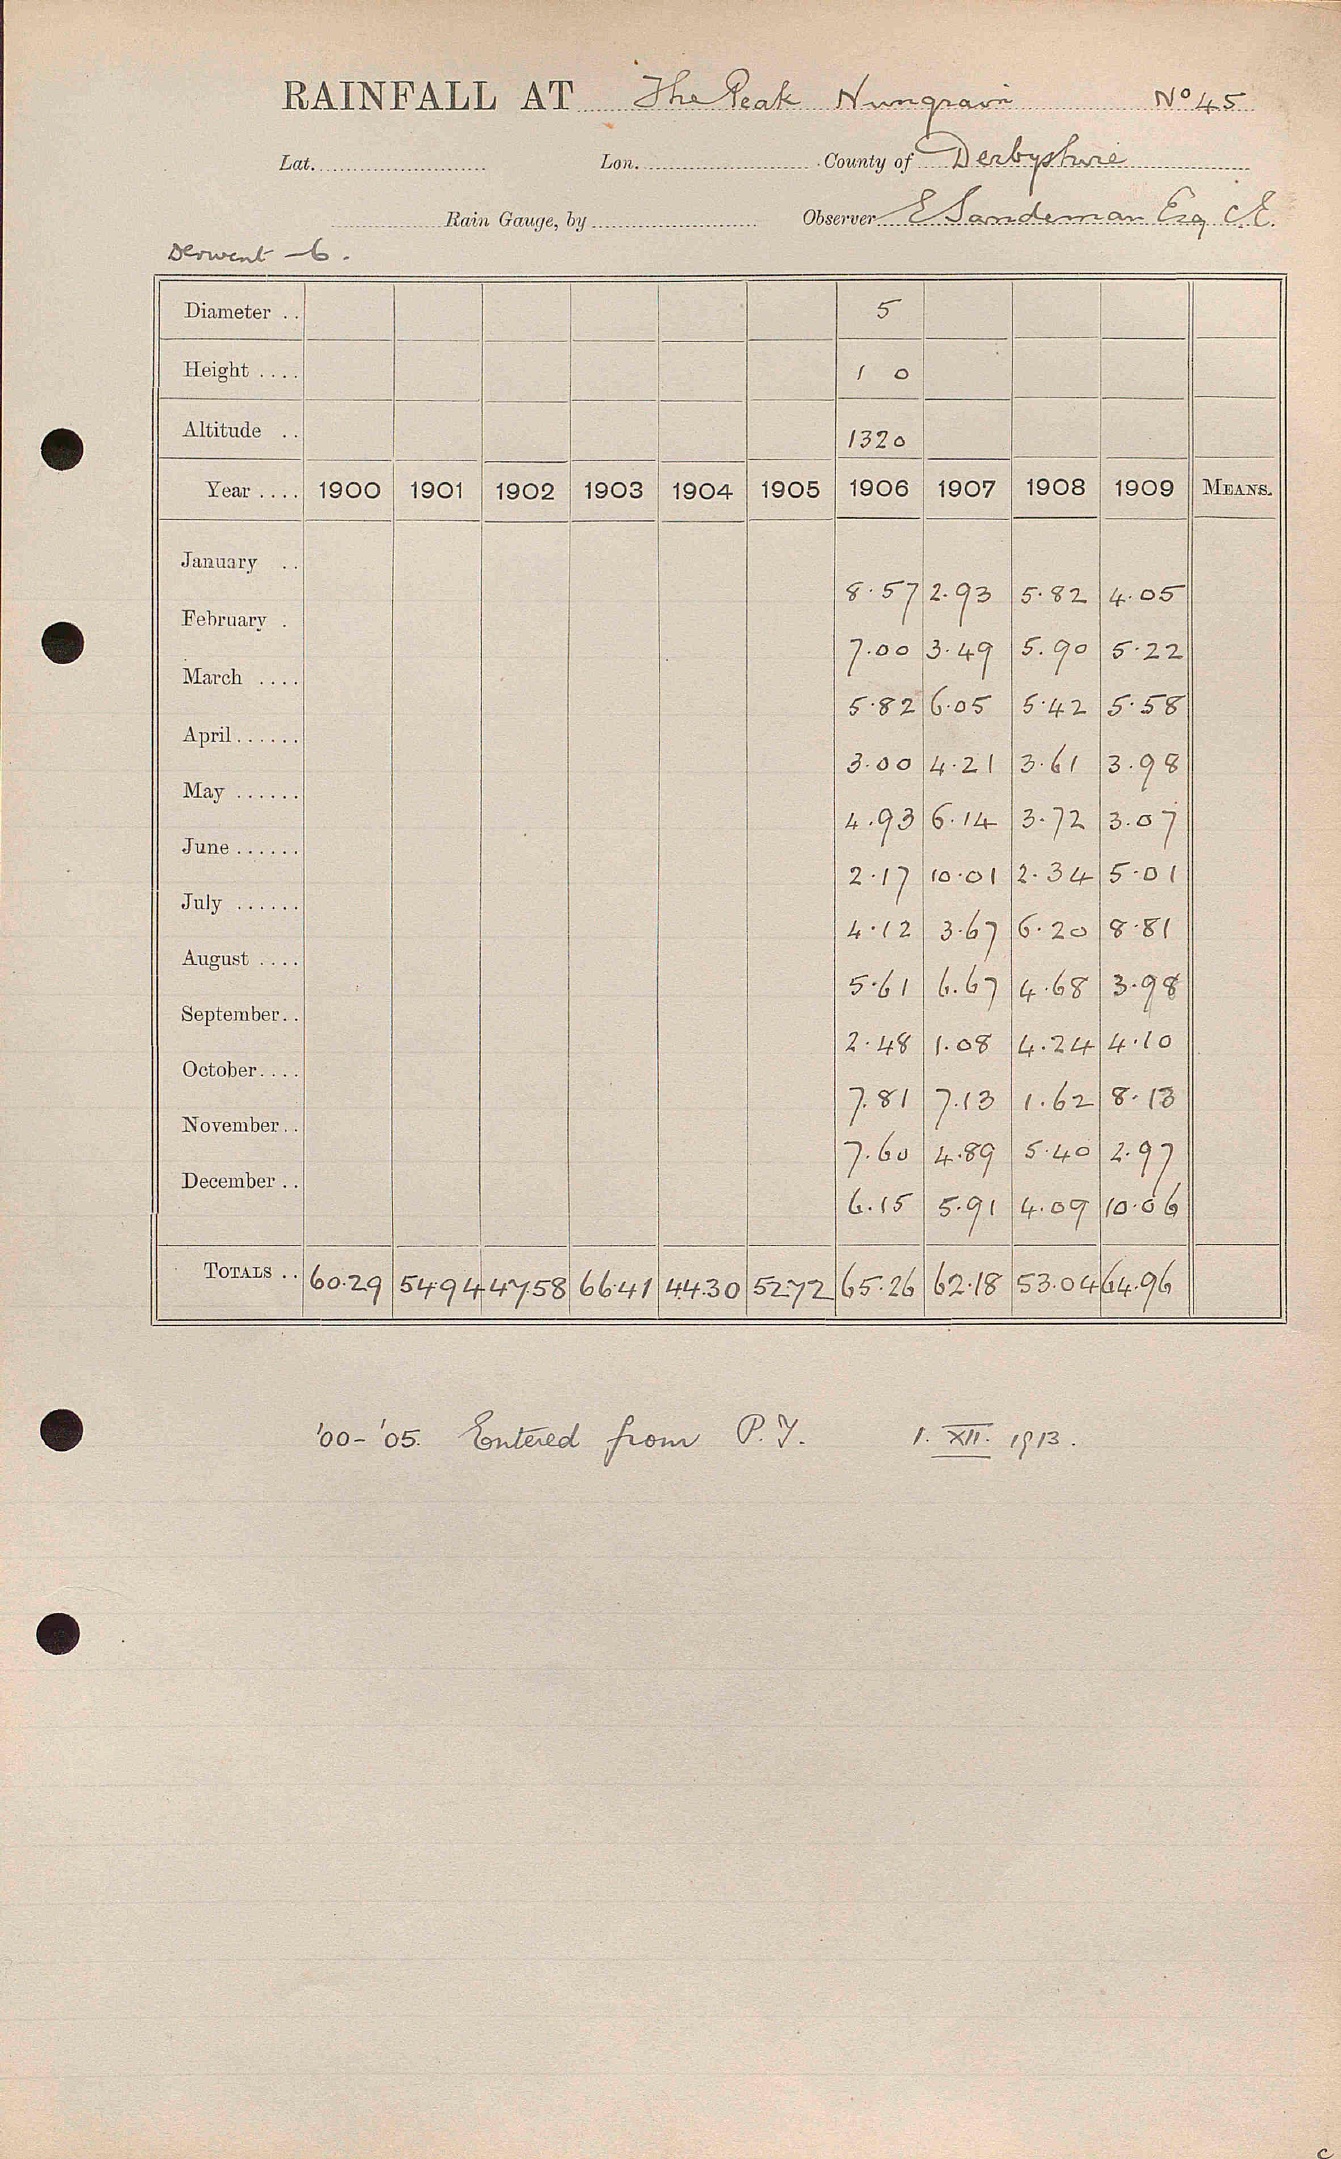 RAINFALL AT The Peak Nungrain No 45
Lat. Lon. County of Derbyshire
Rain Gauge, by Observer E Sandeman Esq C.E.
Derwent - 6.
Diameter .. 5
Height .... 1 0
Altitude .. 1320
Year .... 1900 1901 1902 1903 1904 1905 1906 1907 1908 1909 MEANS.
January .. 8.57 2.93 5.82 4.05
February . 7.00 3.49 5.90 5.22
March .... 5.82 6.05 5.42 5.58
April...... 3.00 4.21 3.61 3.98
May ...... 4.93 6.14 3.72 3.07
June ...... 2.17 10.01 2.34 5.01
July ...... 4.12 3.67 6.20 8.81
August .... 5.61 6.67 4.68 3.98
September.. 2.48 1.08 4.24 4.10
October.... 7.81 7.13 1.62 8.13
November.. 7.60 4.89 5.40 2.97
December .. 6.15 5.91 4.09 10.06
TOTALS .. 60.29 54.94 47.58 66.41 44.30 52.72 65.26 62.18 53.04 64.96
'00-'05. Entered from P.Y. 1. XII. 1913.
c